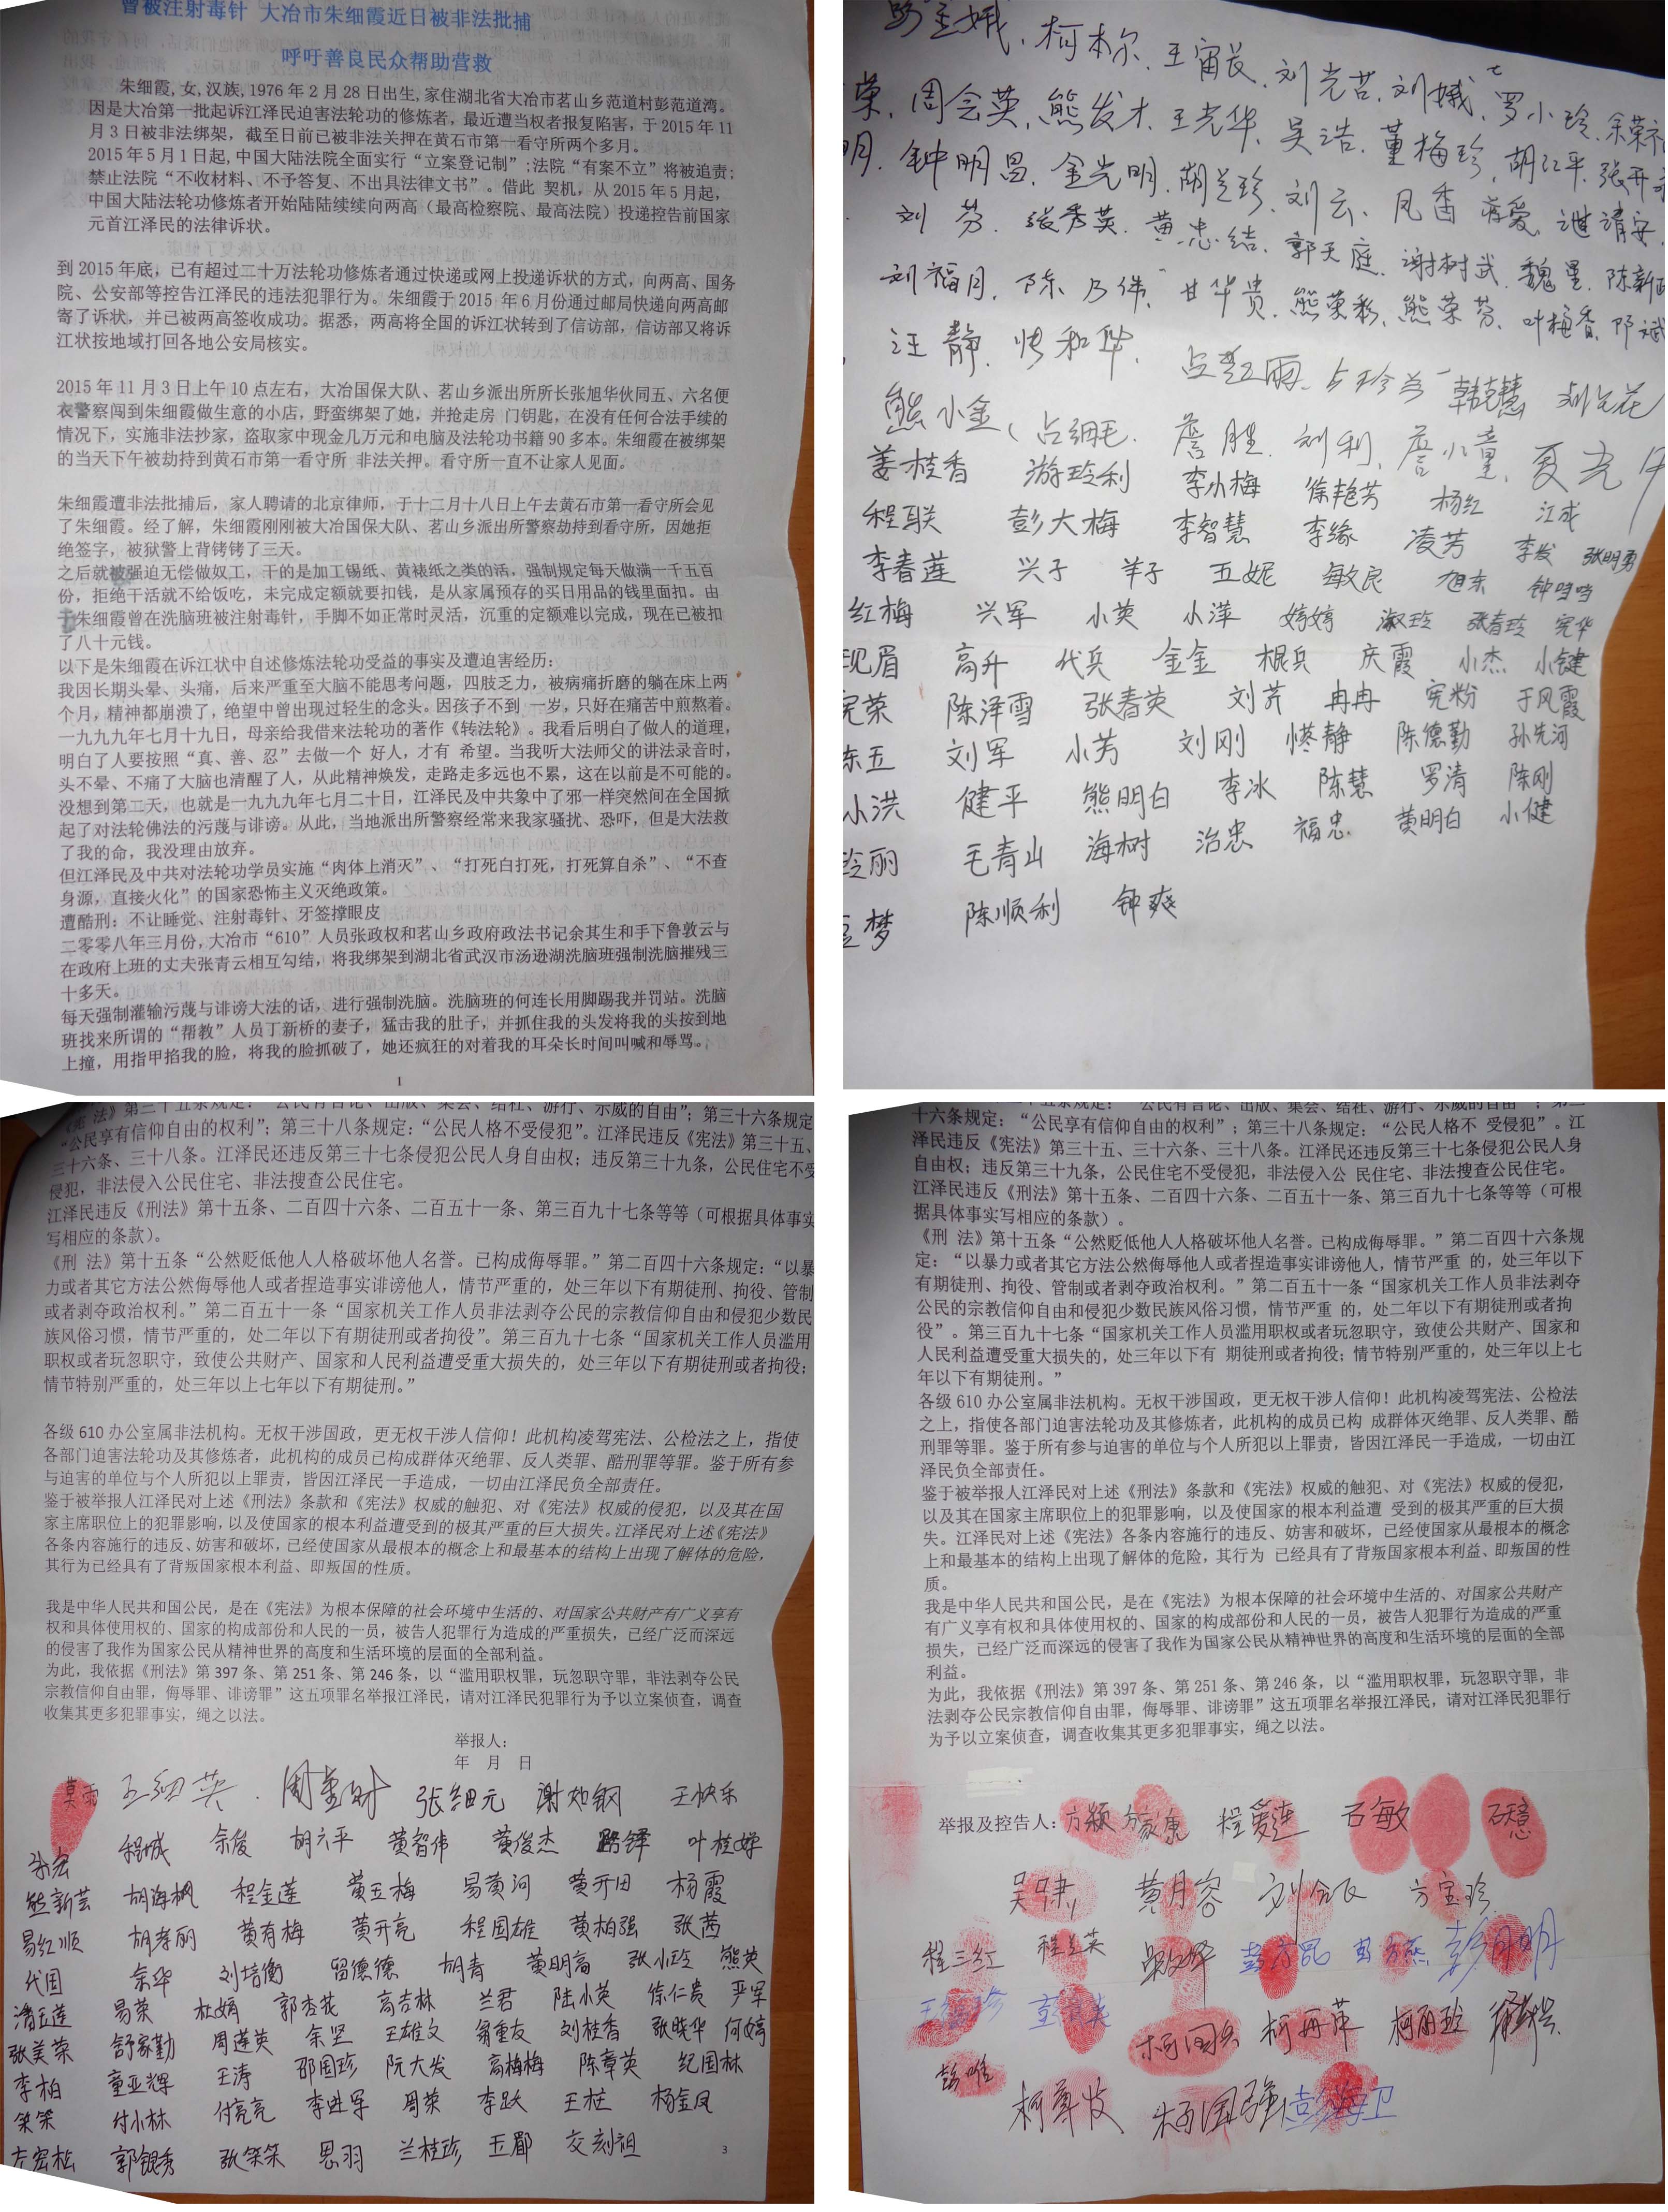 曾被注射毒针 大冶市朱细霞近日被非法批捕
呼吁善良民众帮助营救
朱细霞,女,汉族,1976年2月28日出生,家住湖北省大冶市茗山乡范道村彭范道湾。
因是大冶第一批起诉江泽民迫害法轮功的修炼者，最近遭当权者报复陷害，于2015年11
月3日被非法绑架，截至日前已被非法关押在黄石市第一看守所两个多月。
2015年5月1日起,中国大陆法院全面实行“立案登记制”;法院“有案不立”将被追责;
禁止法院“不收材料、不予答复、不出具法律文书”。借此 契机，从2015年5月起，
中国大陆法轮功修炼者开始陆陆续续向两高（最高检察院、最高法院）投递控告前国家
元首江泽民的法律诉状。
到2015年底，已有超过二十万法轮功修炼者通过快递或网上投递诉状的方式，向两高、国务
院、公安部等控告江泽民的违法犯罪行为。朱细霞于2015年6月份通过邮局快递向两高邮
寄了诉状，并已被两高签收成功。据悉，两高将全国的诉江状转到了信访部，信访部又将诉
江状按地域打回各地公安局核实。
2015年11月3日上午10点左右，大冶国保大队、茗山乡派出所所长张旭华伙同五、六名便
衣警察闯到朱细霞做生意的小店，野蛮绑架了她，并抢走房 门钥匙，在没有任何合法手续的
情况下，实施非法抄家，盗取家中现金几万元和电脑及法轮功书籍90多本。朱细霞在被绑架
的当天下午被劫持到黄石市第一看守所 非法关押。看守所一直不让家人见面。
朱细霞遭非法批捕后，家人聘请的北京律师，于十二月十八日上午去黄石市第一看守所会见
了朱细霞。经了解，朱细霞刚刚被大冶国保大队、茗山乡派出所警察劫持到看守所，因她拒
绝签字，被狱警上背铐铐了三天。
之后就被强迫无偿做奴工，干的是加工锡纸、黄裱纸之类的活，强制规定每天做满一千五百
份，拒绝干活就不给饭吃，未完成定额就要扣钱，是从家属预存的买日用品的钱里面扣。由
于朱细霞曾在洗脑班被注射毒针，手脚不如正常时灵活，沉重的定额难以完成，现在已被扣
了八十元钱。
以下是朱细霞在诉江状中自述修炼法轮功受益的事实及遭迫害经历：
我因长期头晕、头痛，后来严重至大脑不能思考问题，四肢乏力，被病痛折磨的躺在床上两
个月，精神都崩溃了，绝望中曾出现过轻生的念头。因孩子不到 一岁，只好在痛苦中煎熬着。
一九九九年七月十九日，母亲给我借来法轮功的著作《转法轮》。我看后明白了做人的道理，
明白了人要按照“真、善、忍”去做一个 好人，才有 希望。当我听大法师父的讲法录音时，
头不晕、不痛了大脑也清醒了人，从此精神焕发，走路走多远也不累，这在以前是不可能的。
没想到第二天，也就是一九九九年七月二十日，江泽民及中共象中了邪一样突然间在全国掀
起了对法轮佛法的污蔑与诽谤。从此，当地派出所警察经常来我家骚扰、恐吓，但是大法救
了我的命，我没理由放弃。
但江泽民及中共对法轮功学员实施“肉体上消灭”、“打死白打死，打死算自杀”、“不查
身源，直接火化”的国家恐怖主义灭绝政策。
遭酷刑：不让睡觉、注射毒针、牙签撑眼皮
二零零八年三月份，大冶市“610”人员张政权和茗山乡政府政法书记余其生和手下鲁敦云与
在政府上班的丈夫张青云相互勾结，将我绑架到湖北省武汉市汤逊湖洗脑班强制洗脑摧残三
十多天。
每天强制灌输污蔑与诽谤大法的话，进行强制洗脑。洗脑班的何连长用脚踢我并罚站。洗脑
班找来所谓的“帮教”人员丁新桥的妻子，猛击我的肚子，并抓住我的头发将我的头按到地
上撞，用指甲掐我的脸，将我的脸抓破了，她还疯狂的对着我的耳朵长时间叫喊和辱骂。
1
柯本尔、王宙长、刘光苦、刘娥、罗小玲、余荣
荣、周会英、熊发才、王光华、吴浩、董梅珍、胡江平、张开
明、钟明昌、金光明、胡兰珍、刘云、凤香
刘芬、张秀英、黄忠结、郭天庭、谢树武、魏星、陈新
刘福月、陈乃伟、甘华贵、熊荣彩、熊荣芬、叶梅香
汪静、 韩克慧
熊小金、占细毛、詹胜、刘利、詹小童、夏光
姜桂香 游玲利 李小梅 徐艳芳 杨红 江成
程联 彭大梅 李智慧 李缘 凌芳 李发 张明勇
李春莲 兴子 羊子 五妮 敏良 旭东 钟鸣鸣
红梅 兴军 小英 小萍 婷婷 淑玲 张春玲 宪华
现眉 高升 代兵 金金 棍兵 庆霞 小杰 小键
宪荣 陈泽雪 张春英 刘芹 冉冉 宪粉 于风霞
东五 刘军 小芳 刘刚 静 陈德勤 孙先河
小洪 健平 熊明白 李冰 陈慧 罗清 陈刚
玲丽 毛青山 海树 治忠 福忠 黄明白 小健
梦 陈顺利 钟爽
《宪 法》第三十五条规定：“公民有言论、出版、集会、结社、游行、示威的自由”；第三十六条规定
“公民享有信仰自由的权利”；第三十八条规定：“公民人格不受侵犯”。江泽民违反《宪法》第三十五、
三十六条、三十八条。江泽民还违反第三十七条侵犯公民人身自由权；违反第三十九条，公民住宅不受
侵犯，非法侵入公民住宅、非法搜查公民住宅。
江泽民违反《刑法》第十五条、二百四十六条、二百五十一条、第三百九十七条等等（可根据具体事实
写相应的条款）。
《刑 法》第十五条“公然贬低他人人格破坏他人名誉。已构成侮辱罪。”第二百四十六条规定：“以暴
力或者其它方法公然侮辱他人或者捏造事实诽谤他人，情节严重的，处三年以下有期徒刑、拘役、管制
或者剥夺政治权利。”第二百五十一条“国家机关工作人员非法剥夺公民的宗教信仰自由和侵犯少数民
族风俗习惯，情节严重的，处二年以下有期徒刑或者拘役”。第三百九十七条“国家机关工作人员滥用
职权或者玩忽职守，致使公共财产、国家和人民利益遭受重大损失的，处三年以下有期徒刑或者拘役；
情节特别严重的，处三年以上七年以下有期徒刑。”
各级610办公室属非法机构。无权干涉国政，更无权干涉人信仰！此机构凌驾宪法、公检法之上，指使
各部门迫害法轮功及其修炼者，此机构的成员已构成群体灭绝罪、反人类罪、酷刑罪等罪。鉴于所有参
与迫害的单位与个人所犯以上罪责，皆因江泽民一手造成，一切由江泽民负全部责任。
鉴于被举报人江泽民对上述《刑法》条款和《宪法》权威的触犯、对《宪法》权威的侵犯，以及其在国
家主席职位上的犯罪影响，以及使国家的根本利益遭受到的极其严重的巨大损失。江泽民对上述《宪法》
各条内容施行的违反、妨害和破坏，已经使国家从最根本的概念上和最基本的结构上出现了解体的危险，
其行为已经具有了背叛国家根本利益、即叛国的性质。
我是中华人民共和国公民，是在《宪法》为根本保障的社会环境中生活的、对国家公共财产有广义享有
权和具体使用权的、国家的构成部份和人民的一员，被告人犯罪行为造成的严重损失，已经广泛而深远
的侵害了我作为国家公民从精神世界的高度和生活环境的层面的全部利益。
为此，我依据《刑法》第397条、第251条、第246条，以“滥用职权罪，玩忽职守罪，非法剥夺公民
宗教信仰自由罪，侮辱罪、诽谤罪”这五项罪名举报江泽民，请对江泽民犯罪行为予以立案侦查，调查
收集其更多犯罪事实，绳之以法。
举报人：
年 月 日
莫雨 王细英 张细元 谢灿钢 王快乐
程城 余俊 胡六平 黄智伟 黄俊杰 叶桂婵
熊新芸 胡海枫 程金莲 黄五梅 易黄河 黄开田 杨霞
易红顺 胡孝丽 黄有梅 黄开亮 程国雄 黄柏强 张茜
代国 余华 刘培衡 留德德 胡青 黄明高 张小玲 熊英
潘玉莲 易荣 杜娟 郭杏花 高吉林 兰君 陆小英 徐仁贵 尹军
张美荣 舒家勤 周莲英 余坚 王雄文 翁重友 刘桂香 张晓华 何婷
李柏 童亚辉 王涛 邵国珍 阮大发 高梅梅 陈章英 纪国林
笑笑 付小林 付亮亮 李进军 周荣 李跃 王栏 杨金凤
左宏松 郭银秀 张笑笑 思羽 兰桂珍 玉郡 交刻祖
3
十六条规定：“公民享有信仰自由的权利”；第三十八条规定：“公民人格不 受侵犯”。江
泽民违反《宪法》第三十五、三十六条、三十八条。江泽民还违反第三十七条侵犯公民人身
自由权；违反第三十九条，公民住宅不受侵犯，非法侵入公 民住宅、非法搜查公民住宅。
江泽民违反《刑法》第十五条、二百四十六条、二百五十一条、第三百九十七条等等（可根
据具体事实写相应的条款）。
《刑 法》第十五条“公然贬低他人人格破坏他人名誉。已构成侮辱罪。”第二百四十六条规
定：“以暴力或者其它方法公然侮辱他人或者捏造事实诽谤他人，情节严重 的，处三年以下
有期徒刑、拘役、管制或者剥夺政治权利。”第二百五十一条“国家机关工作人员非法剥夺
公民的宗教信仰自由和侵犯少数民族风俗习惯，情节严重 的，处二年以下有期徒刑或者拘
役”。第三百九十七条“国家机关工作人员滥用职权或者玩忽职守，致使公共财产、国家和
人民利益遭受重大损失的，处三年以下有 期徒刑或者拘役；情节特别严重的，处三年以上七
年以下有期徒刑。”
各级610办公室属非法机构。无权干涉国政，更无权干涉人信仰！此机构凌驾宪法、公检法
之上，指使各部门迫害法轮功及其修炼者，此机构的成员已构 成群体灭绝罪、反人类罪、酷
刑罪等罪。鉴于所有参与迫害的单位与个人所犯以上罪责，皆因江泽民一手造成，一切由江
泽民负全部责任。
鉴于被举报人江泽民对上述《刑法》条款和《宪法》权威的触犯、对《宪法》权威的侵犯，
以及其在国家主席职位上的犯罪影响，以及使国家的根本利益遭 受到的极其严重的巨大损
失。江泽民对上述《宪法》各条内容施行的违反、妨害和破坏，已经使国家从最根本的概念
上和最基本的结构上出现了解体的危险，其行为 已经具有了背叛国家根本利益、即叛国的性
质。
我是中华人民共和国公民，是在《宪法》为根本保障的社会环境中生活的、对国家公共财产
有广义享有权和具体使用权的、国家的构成部份和人民的一员，被告人犯罪行为造成的严重
损失，已经广泛而深远的侵害了我作为国家公民从精神世界的高度和生活环境的层面的全部
利益。
为此，我依据《刑法》第397条、第251条、第246条，以“滥用职权罪，玩忽职守罪，非
法剥夺公民宗教信仰自由罪，侮辱罪、诽谤罪”这五项罪名举报江泽民，请对江泽民犯罪行
为予以立案侦查，调查收集其更多犯罪事实，绳之以法。
举报及控告人：方颖 方家康 程爱莲 石敏 石慧
黄月容 方宝珍
程三红 程兰英 彭方昆 彭方燕 彭月明
柯国兵 柯再萍 柯丽玲
彭唯
柯尊枝 柯国强 彭海卫